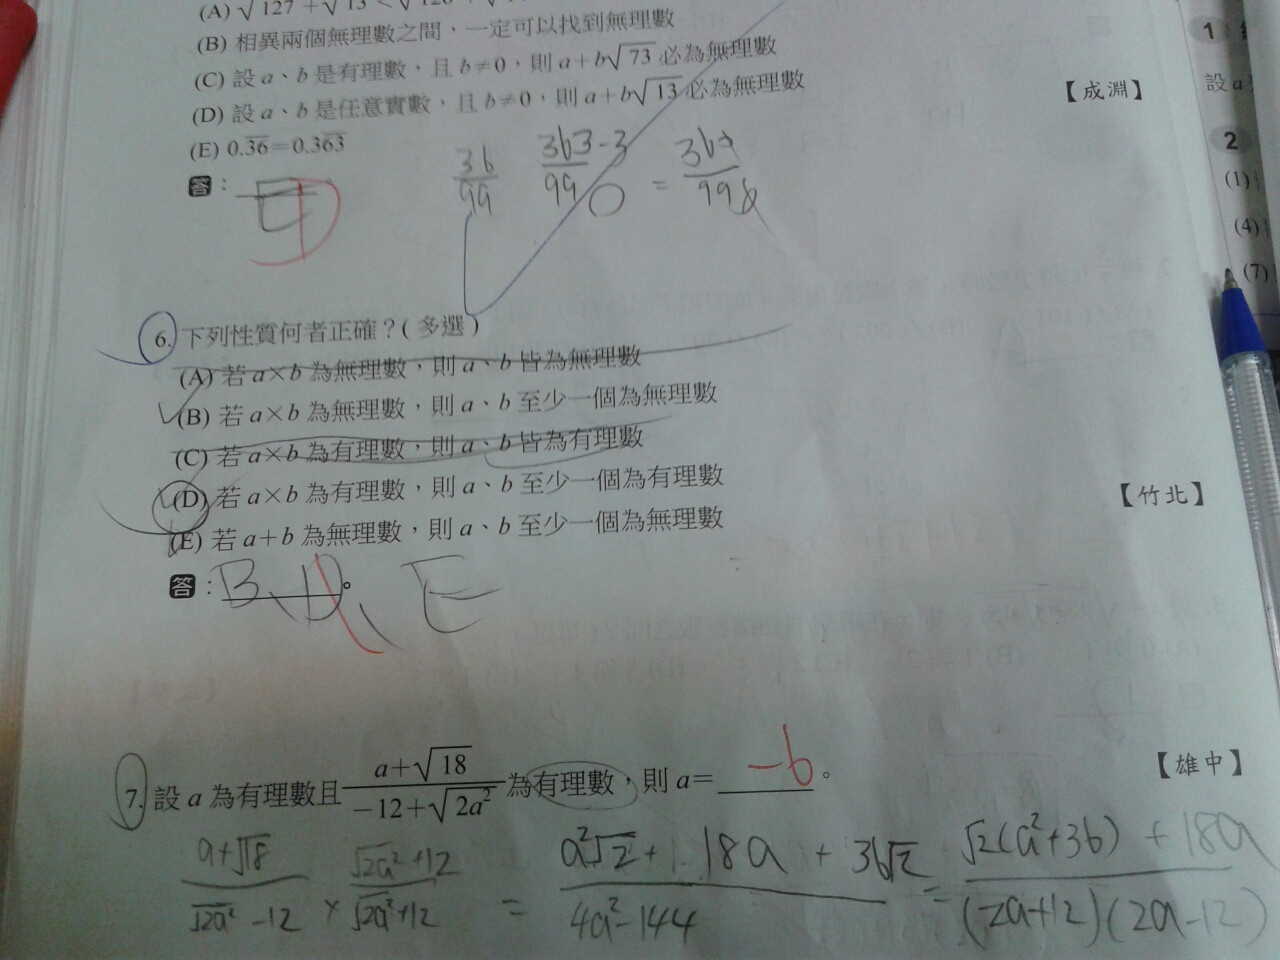 (A) √127 + √13 <
(B) 相異兩個無理數之間，一定可以找到無理數
(C) 設 a、b 是有理數，且 b≠0，則 a+b√73 必為無理數
(D) 設 a、b 是任意實數，且 b≠0，則 a+b√13 必為無理數
【成淵】
(E) 0.3̅6̅=0.36̅3̅
36/99 363-3/990 = 363/998
答：
6. 下列性質何者正確？(多選)
(A) 若 a×b 為無理數，則 a、b 皆為無理數
(B) 若 a×b 為無理數，則 a、b 至少一個為無理數
(C) 若 a×b 為有理數，則 a、b 皆為有理數
(D) 若 a×b 為有理數，則 a、b 至少一個為有理數
(E) 若 a+b 為無理數，則 a、b 至少一個為無理數
【竹北】
答：B、D、E。
7. 設 a 為有理數且 (a+√18)/(-12+√2a²) 為有理數，則 a= -6。
【雄中】
(a+√18)/(√2a²-12) × (√2a²+12)/(√2a²+12) = (a²√2+18a+36√2)/(4a²-144) = (√2(a²+36)+18a)/((2a+12)(2a-12))
1
設 a
2
(1)
(4)
(7)